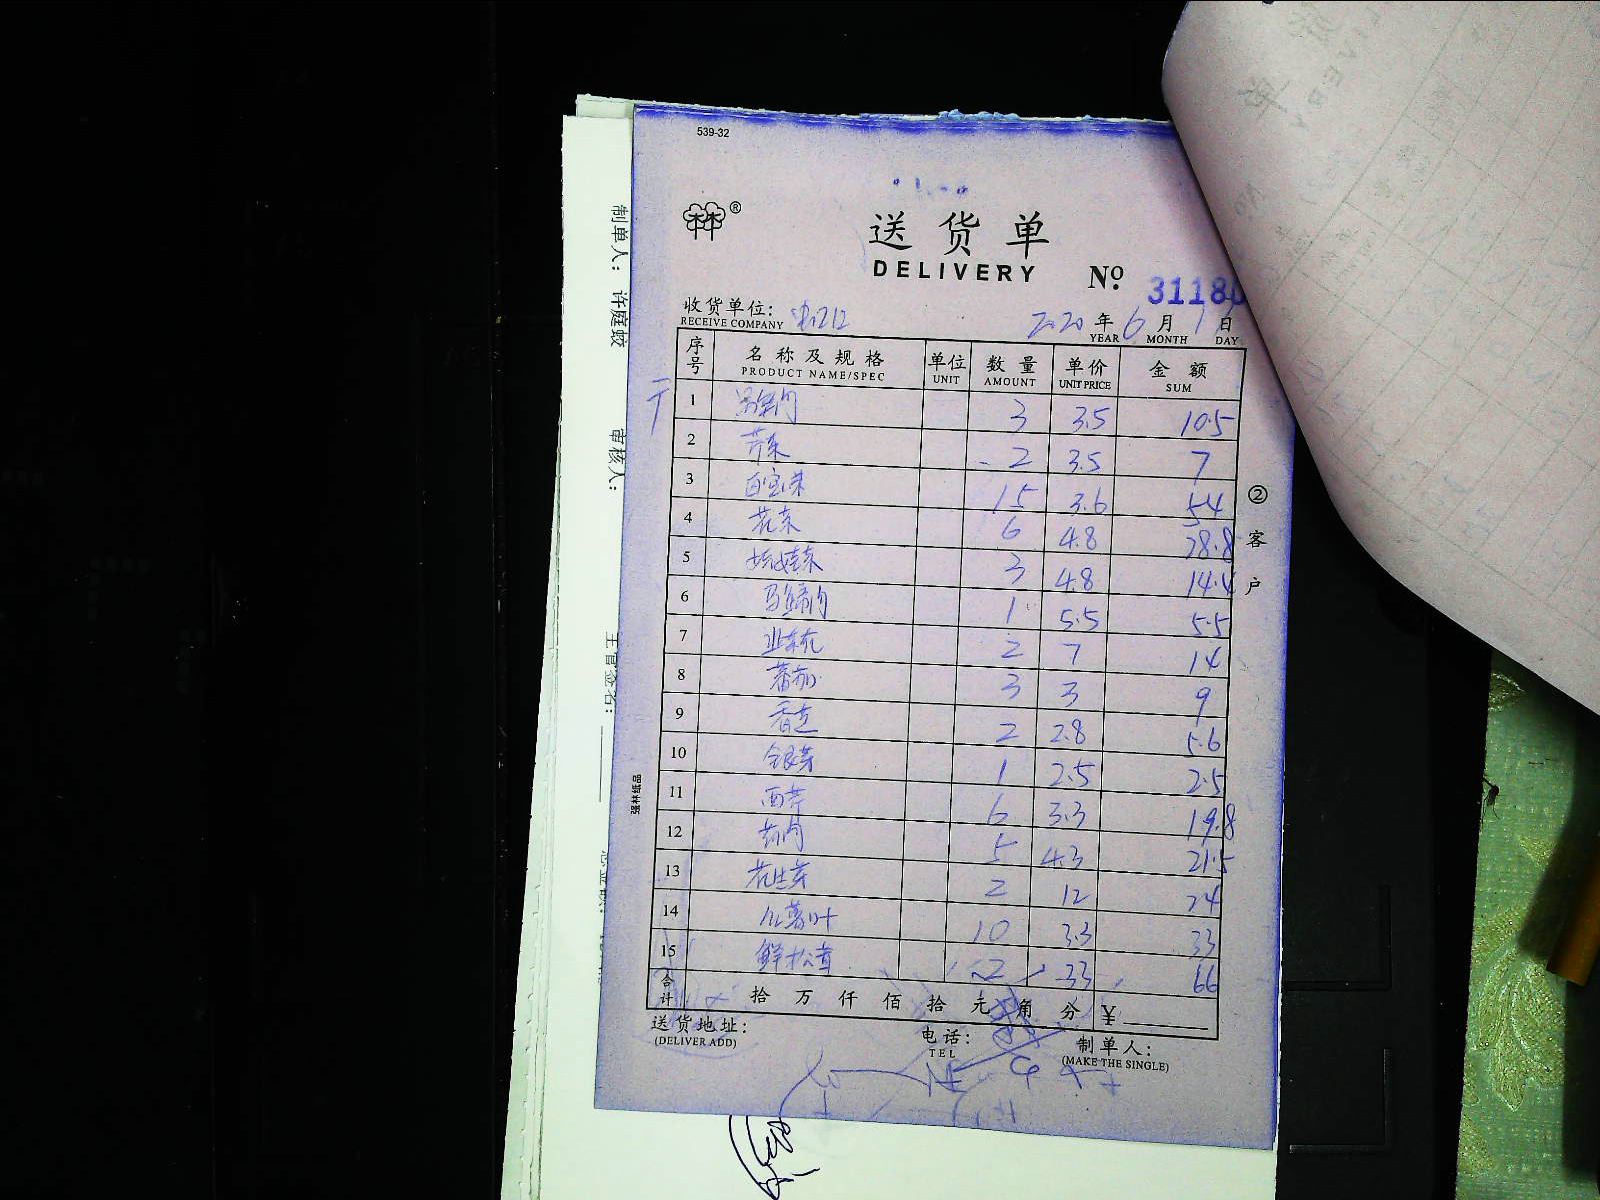 539-32
林®
送货单
DELIVERY No. 31180
收货单位:
RECEIVE COMPANY
2020年6月1日
YEAR MONTH DAY
序号 名称及规格 单位 数量 单价 金额
PRODUCT NAME/SPEC UNIT AMOUNT UNIT PRICE SUM
1 3 3.5 10.5
2 芹菜 2 3.5 7
3 15 3.6 54
4 花菜 6 4.8 28.8
5 娃娃菜 3 4.8 14.4
6 马蹄肉 1 5.5 5.5
7 韭菜花 2 7 14
8 蕃茄 3 3 9
9 香芝 2 2.8 5.6
10 银芽 1 2.5 2.5
11 西芹 6 3.3 19.8
12 5 4.3 21.5
13 花生芽 2 12 24
14 薯叶 10 3.3 33
15 鲜松茸 2 33 66
合计 拾万仟佰拾元角分 ¥
送货地址:
(DELIVER ADD)
电话:
TEL
制单人:
(MAKE THE SINGLE)
②客户
强林纸品
制单人: 许庭蛟
审核人:
主管签名: